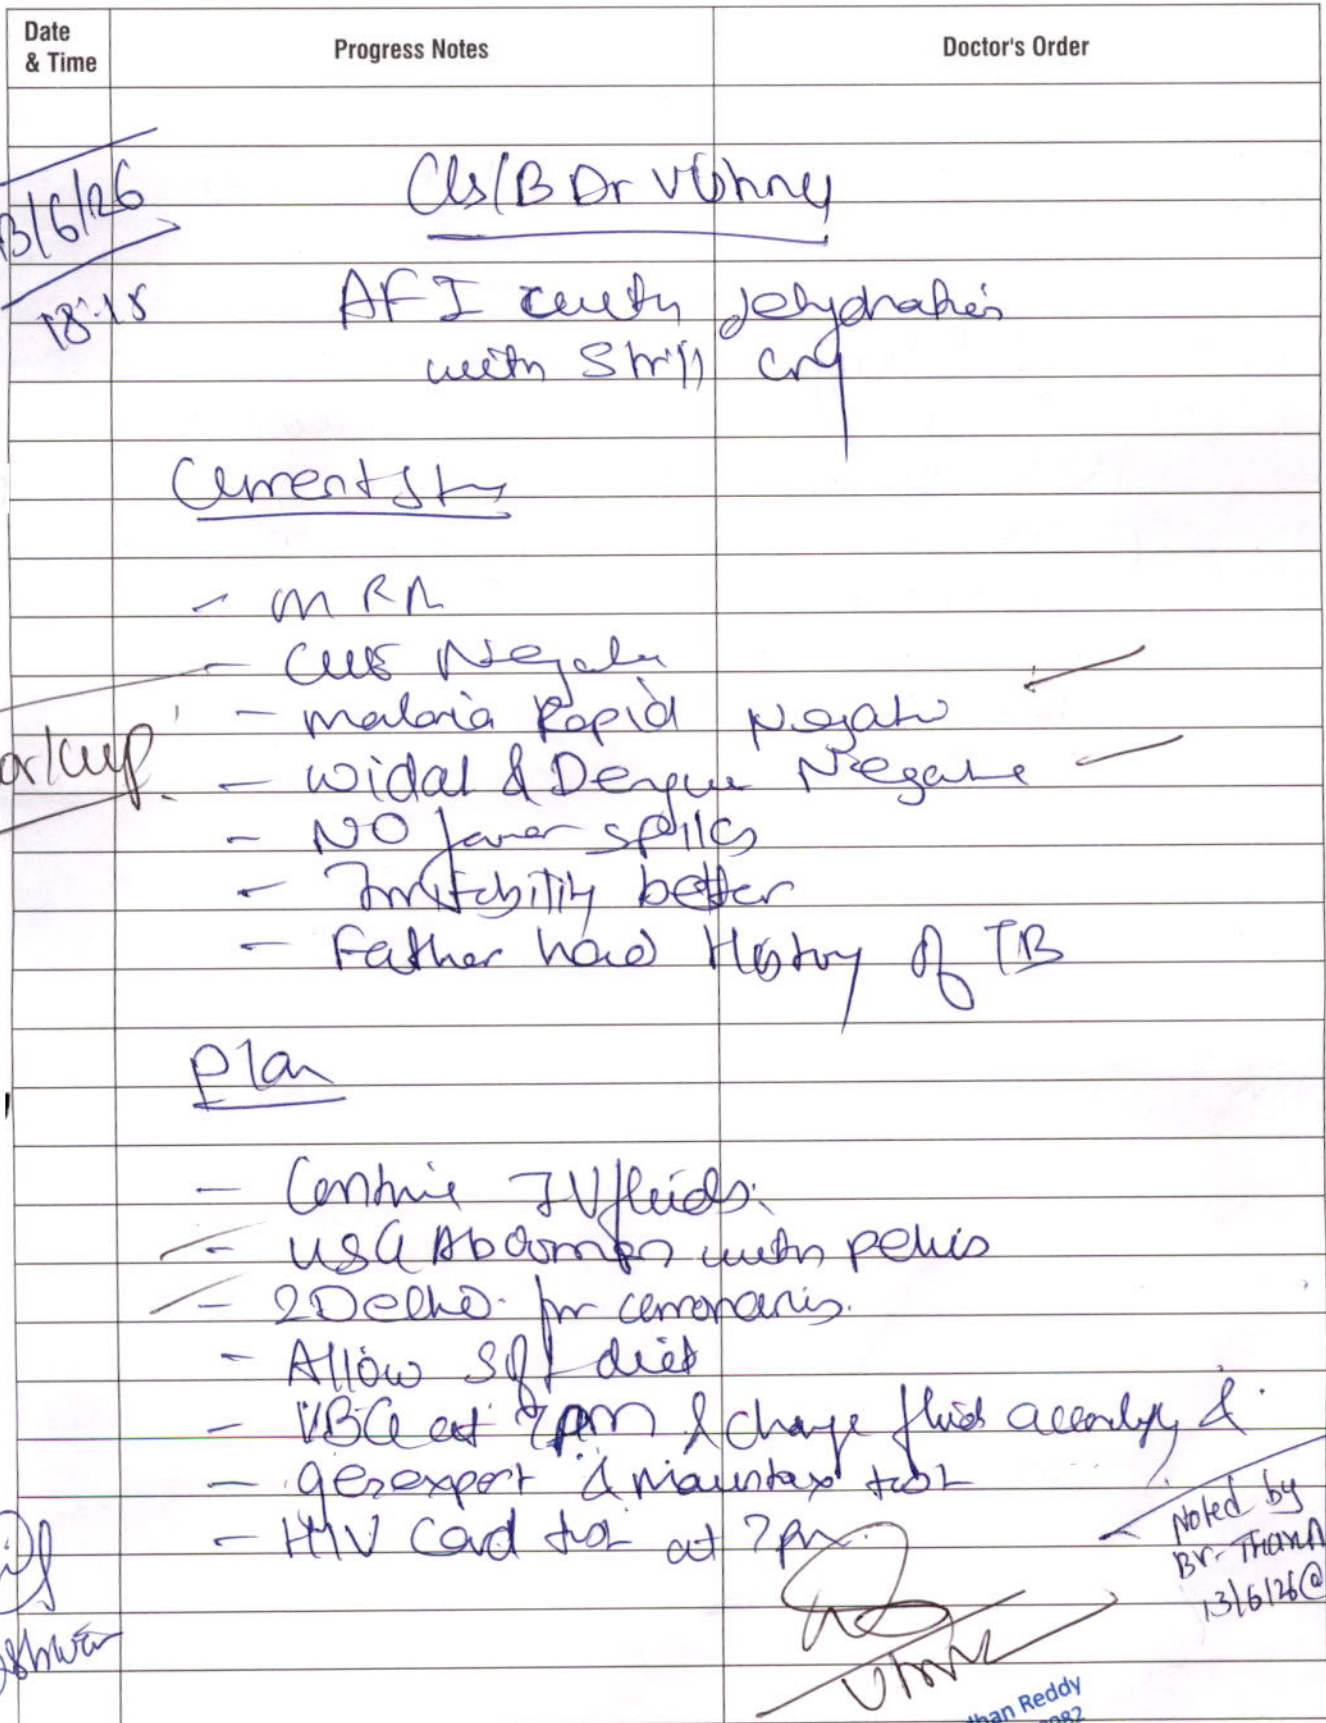 Date & Time
Progress Notes
Doctor's Order
13/6/26
18:15
C/s/B Dr
AFI with dehydration
with Shrill cry
Current
- CUE Negative
- Malaria Rapid Negative
- Widal & Dengue Negative
- NO fever spikes
- Irritability better
- Father had History of TB
Plan
- Continue IV fluids.
- USG Abdomen with pelvis
- 2D echo for coronaries.
- Allow soft diet
- VBG at 7pm & change fluid accordingly &
- genexpert & mauntax test
- HIV Card test at 7pm.
Noted by
Br-
13/6/26@
han Reddy